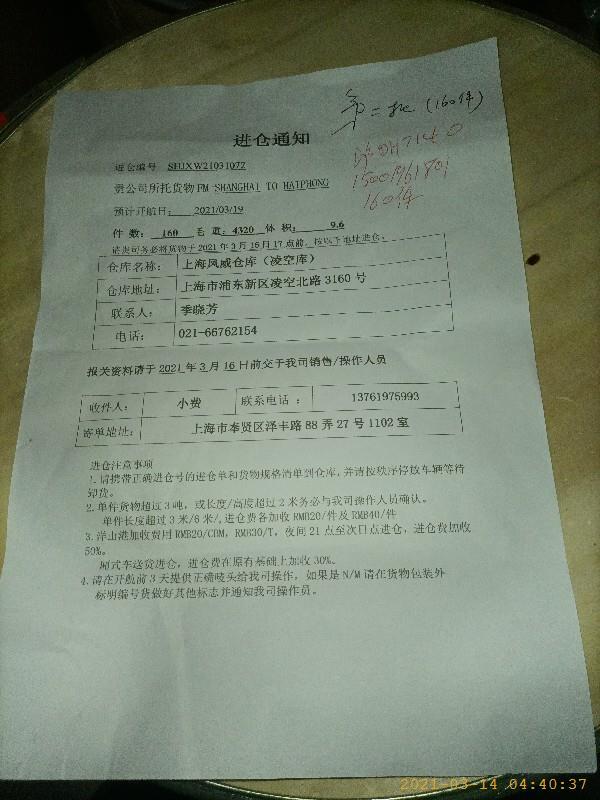 第二批 (160件)
进仓通知
进仓编号 SHJXW21031072
贵公司所托货物FM SHANGHAI TO HAIPHONG
预计开航日: 2021/03/19
件 数: 160 毛 重: 4320 体 积: 9.6
160件
请贵司务必将货物于2021年3月16月17点前,按以下地址进仓:
仓库名称: 上海凤威仓库(凌空库)
仓库地址: 上海市浦东新区凌空北路3160号
联系人: 季晓芳
电话: 021-66762154
报关资料请于2021年3月16日前交于我司销售/操作人员
收件人: 小费 联系电话: 13761975993
寄单地址: 上海市奉贤区泽丰路88弄27号1102室
进仓注意事项
1.请携带正确进仓号的进仓单和货物规格清单到仓库,并请按秩序停放车辆等待
卸货。
2.单件货物超过3吨,或长度/高度超过2米务必与我司操作人员确认。
单件长度超过3米/6米/,进仓费各加收RMB20/件及RMB40/件
3.洋山港加收费用RMB20/CBM,RMB30/T,夜间21点至次日点进仓,进仓费加收
50%。
厢式车送货进仓,进仓费在原有基础上加收30%。
4.请在开航前3天提供正确唛头给我司操作,如果是N/M请在货物包装外
标明编号货做好其他标志并通知我司操作员。
2021-03-14 04:40:37